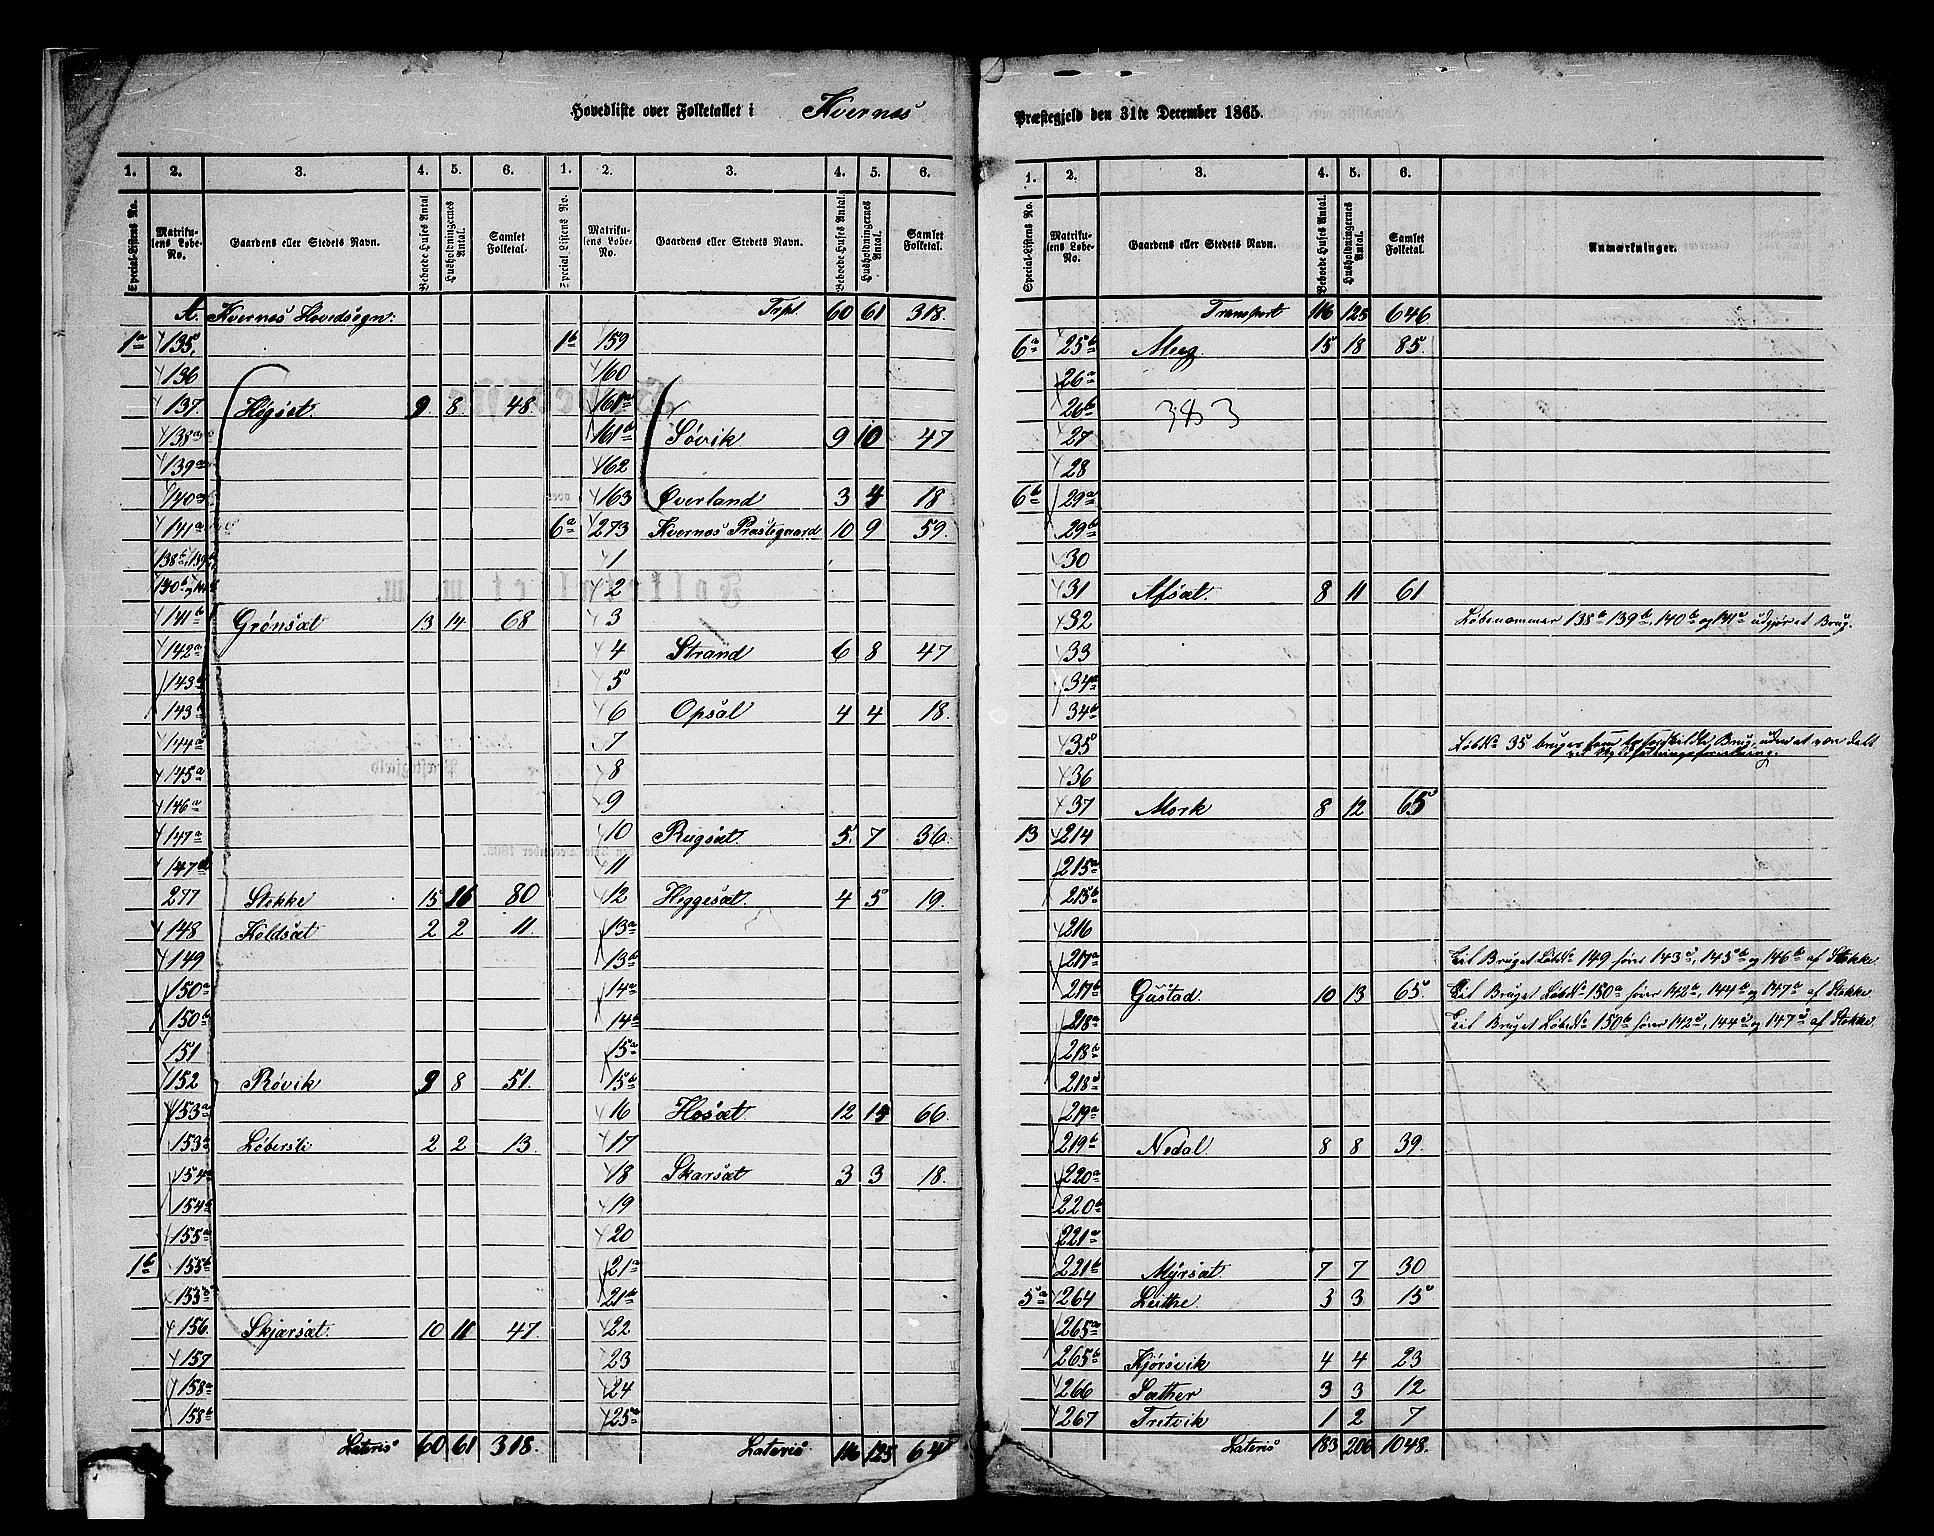 Hovedliste over Folketallet i Kvernæs Præstegjeld den 31te December 1865.
1. 2. 3. 4. 5. 6. 1. 2. 3. 4. 5. 6.
Special-Listens No. Matrikulens Løbe-No. Gaardens eller Stedets Navn. Beboede Huses Antal Husholdningernes Antal. Samlet Folketal. Special Listens No. Matrikulens Løbe-No. Gaardens eller Stedets Navn. Beboede Huses Antal. Husholdningernes Antal. Samlet Folketal.
A. Kvernæs Hovedsogn:
1a 135.
136
137. Högset. 9 8 48.
138a
139a
140a
141a
138b, 139b
140b og 141a
141b Grönsæt 13 14 68
142a
143a
143b
144a
145a
146a
147a
147d
277 Stokke 15 16 80
148 Koldsæt 2 2 11.
149
150a
150b
151
152 Rövik 9 8 51.
153a
153b Löbersli 2 2 13.
154a
154b
155a
1b 155b
155c
156. Skjærsæt. 10 11 47.
157
158a
158b
Lateris 60 61 318.
Trpt. 60 61 318.
1b 159
160
161a
161b Sövik 9 10 47
162
163 Överland 3 4 18
6a 273 Kvernæs Præstegaard 10 9 59.
1
2
3
4 Strand 6 8 47
5
6 Opsal 4 4 18.
7
8
9
10 Rugsæt. 5. 7 36.
11
12 Heggesæt. 4 5 19.
13a
13b
14a
14b
15a
15b
16 Hosæt. 12 14 66.
17
18 Skarsæt 3 3 18.
19
20
21a
21b
22
23
24
25a
Lateris 116 125 64
1. 2. 3. 4. 5. 6.
Special-Listens No. Matrikulens Løbe-No. Gaardens eller Stedets Navn. Beboede Huses Antal. Husholdningernes Antal. Samlet Folketal. Anmærkninger.
Transport 116 125 646
6a 25b Meeg. 15 18 85.
26a
26b 383
27
28
6b 29a
29b
30
31 Afsæt. 8 11 61
32 Löbenummer 138b 139b, 140b og 141a udgjør et Brug.
33
34a
34b
35 LöbNo 35 bruges som to forskjellige Brug, uden at være delt
36
37 Mork 8 12 65
13 214
215a
215b
216
217a Til Bruget LöbNo 149 hører 143c, 145b og 146b af Stokke.
217b Gustad 10 13 65. Til Bruget LöbeNo 150a hører 142b, 144b og 147b af Stokke.
218a Til Bruget LöbeNo 150b hører 142c, 144c og 147c af Stokke.
218b
218c
219a
219b Nedal 8 8 39.
220a
220b
221a
221b Myrsæt. 7 7 30
5a 264 Leithe 3 3 15
265a
265b Kjørsvik 4 4 23
266 Sæther 3 3 12
267 Tretvik 1 2 7
Lateris 183 206 1048.